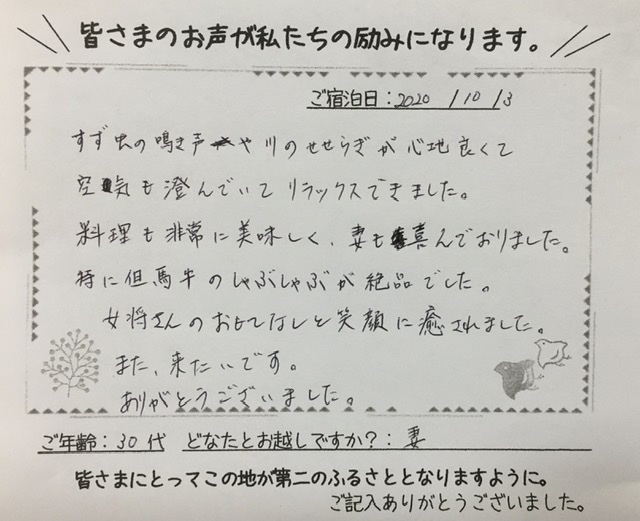 皆さまのお声が私たちの励みになります。
ご宿泊日:2020/10/3
すず虫の鳴き声や川のせせらぎが心地良くて
空気も澄んでいてリラックスできました。
料理も非常に美味しく、妻も喜んでおりました。
特に但馬牛のしゃぶしゃぶが絶品でした。
女将さんのおもてなしと笑顔に癒されました。
また、来たいです。
ありがとうございました。
ご年齢:30代 どなたとお越しですか?:妻
皆さまにとってこの地が第二のふるさととなりますように。
ご記入ありがとうございました。